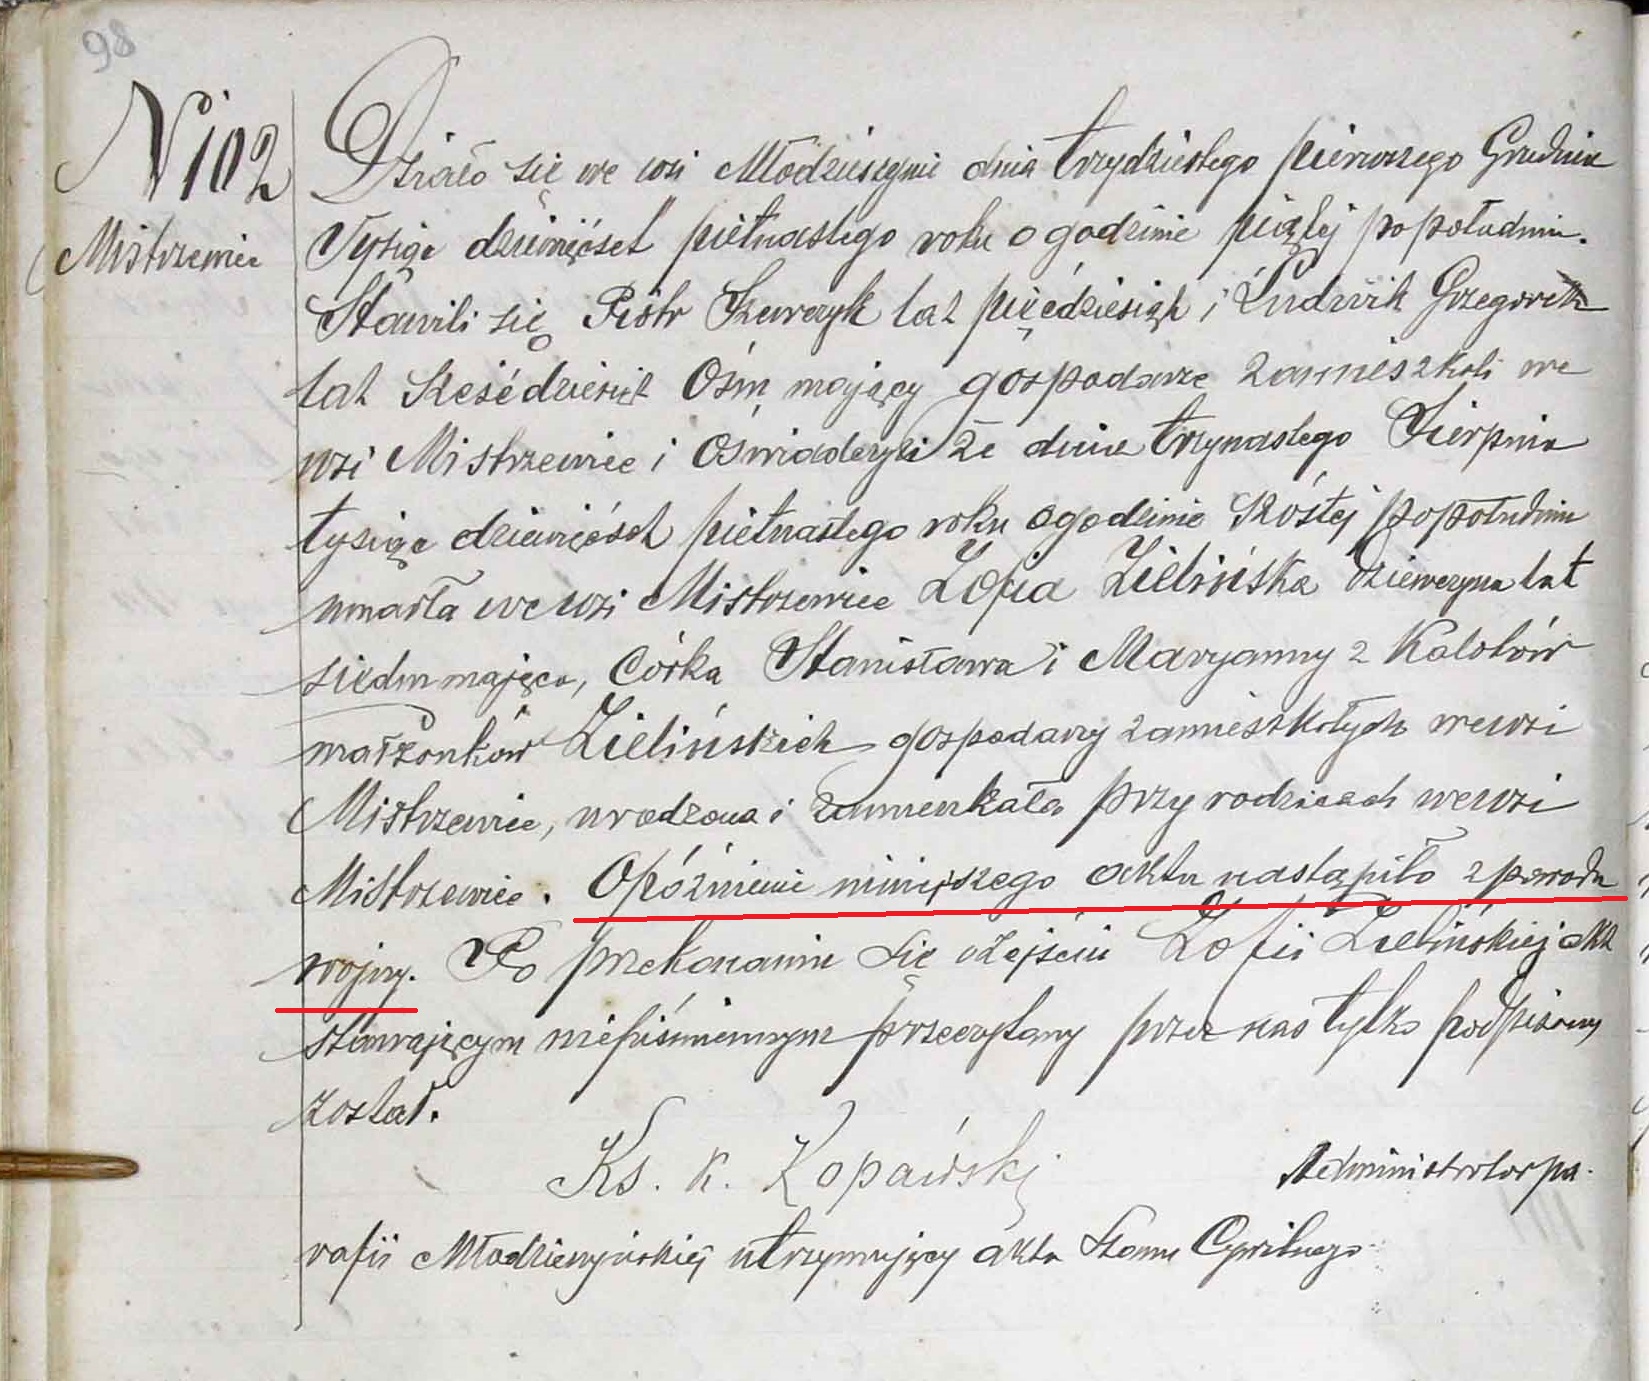 98
N 102
Mistrzewice
Działo się we wsi Młodzieszynie dnia trzydziestego pierwszego Grudnia
Tysiąc dziewięćset piętnastego roku o godzinie piątej popołudniu.
Stawili się Piotr Szewczyk lat pięćdziesiąt i Ludwik Grzegorek
lat sześćdziesiąt ośm mający gospodarze zamieszkali we
wsi Mistrzewice i Oświadczyli że dnia trzynastego Sierpnia
tysiąc dziewięćset piętnastego roku o godzinie szóstej popołudniu
umarła we wsi Mistrzewice Zofia Zielińska dziewczyna lat
siedm mająca, Córka Stanisława i Maryanny z
małżonków Zielińskich gospodarzy zamieszkałych we wsi
Mistrzewice, urodzona i zamieszkała przy rodzicach we wsi
Mistrzewice. Opóźnienie niniejszego aktu nastąpiło z powodu
wojny. Po przekonaniu się o zejściu Zofii Zielińskiej akt
stawającym niepiśmiennym przeczytany przez nas tylko podpisany
został.
Ks. K. Kopański Administrator pa-
rafii Młodzieszyńskiej utrzymujący akta Stanu Cywilnego